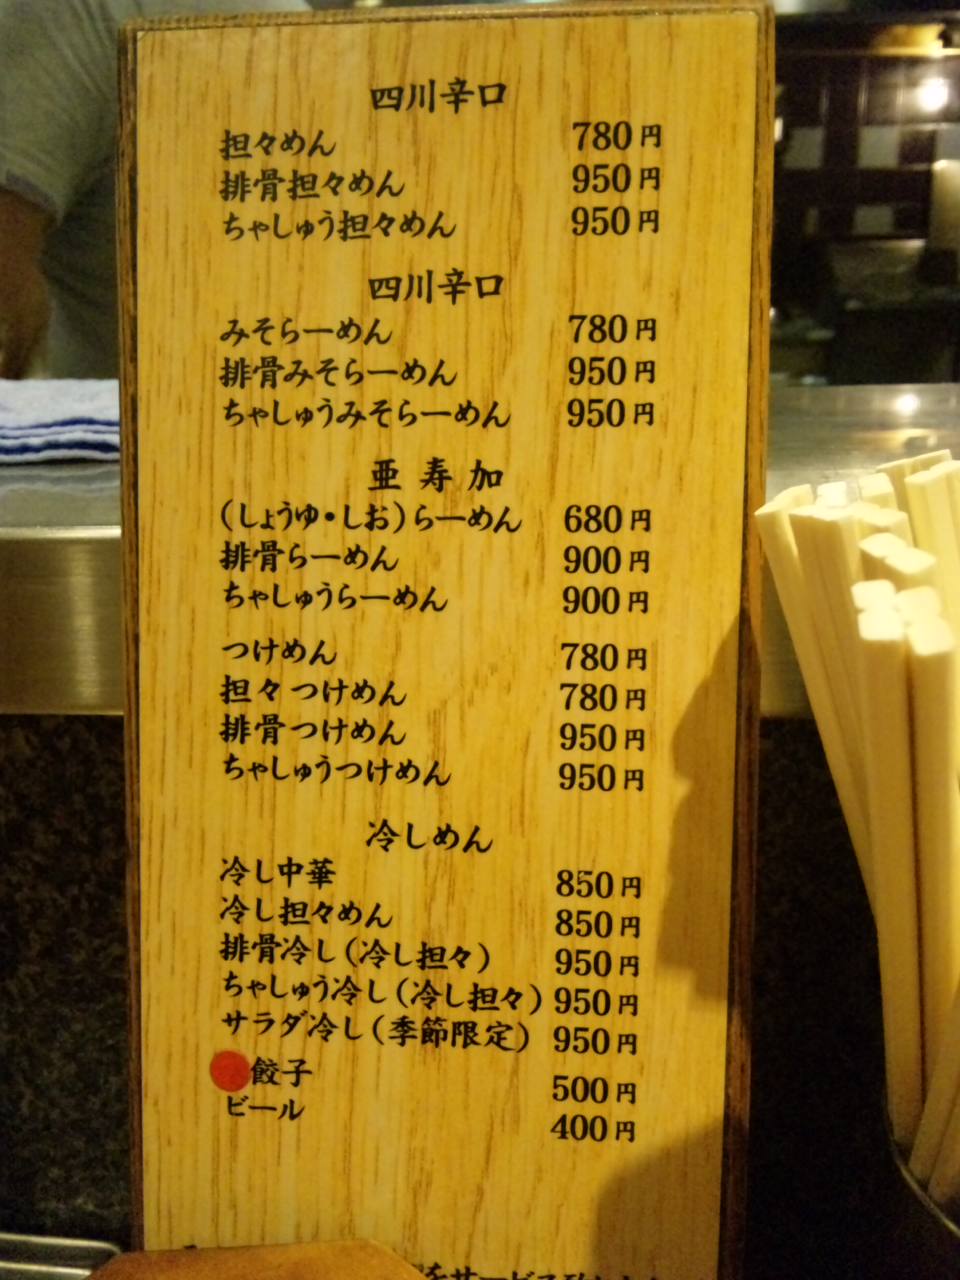 四川辛口
担々めん 780円
排骨担々めん 950円
ちゃしゅう担々めん 950円
四川辛口
みそらーめん 780円
排骨みそらーめん 950円
ちゃしゅうみそらーめん 950円
亜寿加
(しょうゆ・しお)らーめん 680円
排骨らーめん 900円
ちゃしゅうらーめん 900円
つけめん 780円
担々つけめん 780円
排骨つけめん 950円
ちゃしゅうつけめん 950円
冷しめん
冷し中華 850円
冷し担々めん 850円
排骨冷し(冷し担々) 950円
ちゃしゅう冷し(冷し担々) 950円
サラダ冷し(季節限定) 950円
餃子 500円
ビール 400円
をサービス